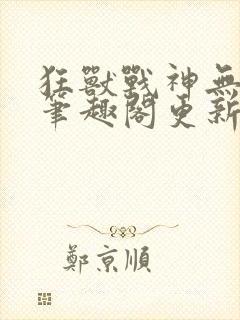 狂獸戰神無
筆趣閣更新
鄭京順